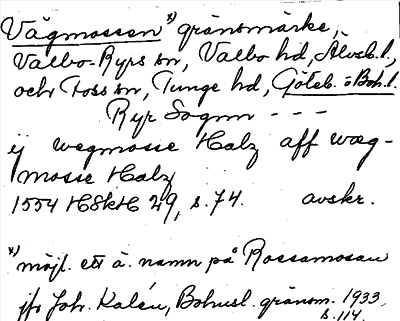 Vägmossen *) gränsmärke,
Valbo-Ryrs sn, Valbo hd, Älvsb. l.,
och Foss sn, Tunge hd, Göteb. o Boh. l.
Ryr Sognn - - -
ij wegmosse Halz aff wæg-
mosse Halz
1554 H8kH 29, s. 74. avskr.
*) möjl. ett ä. namn på Rossamosau
jfr Joh. Kalén, Bohusl. gränsm. 1933,
s. 114.